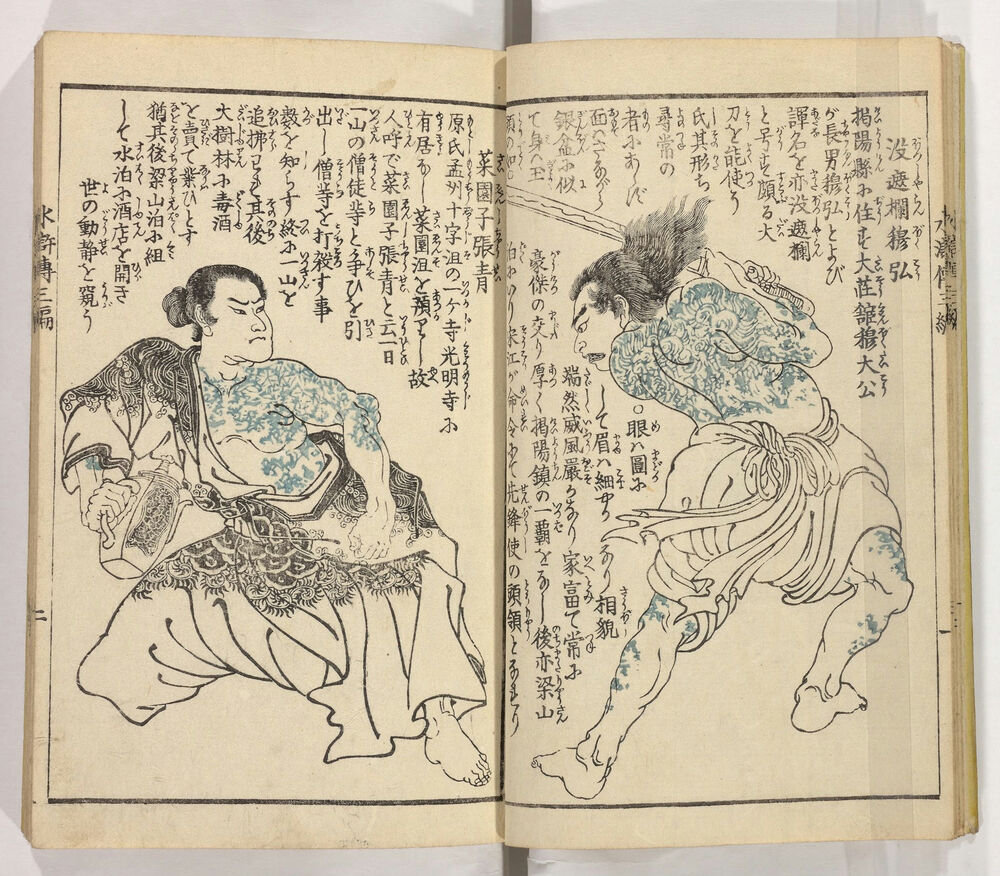 没遮欄穆弘
掲陽縣に住す大荘舘穆大公
が長男穆弘とよび
諢名を亦没遮欄
と号す頗る大
刀を能使う
氏其形ち
尋常の
者にあらず
面ハさながら
銀盆に似
て身ハ玉
眼ハ圖に
して眉ハ細やかにあり相貌
端然威風嚴にあり家富て常に
豪傑の交り厚く掲陽鎮の一覇をなし後亦梁山
泊にいり宋江が命令にて先鋒使の頭領となれり
菜園子張青
原氏孟州十字沮の一ヶ寺光明寺に
有居なし菜園沮を預りし故
人呼で菜園子張青と云一日
一山の僧徒と争ひを引
出し僧等を打殺す事
数を知らす終に一山を
追拂ひ其後
大樹林に毒酒
を賣て業ひとす
猶其後梁山泊に組
して水泊に酒店を開き
世の動静を窺う
水滸傳三編
二